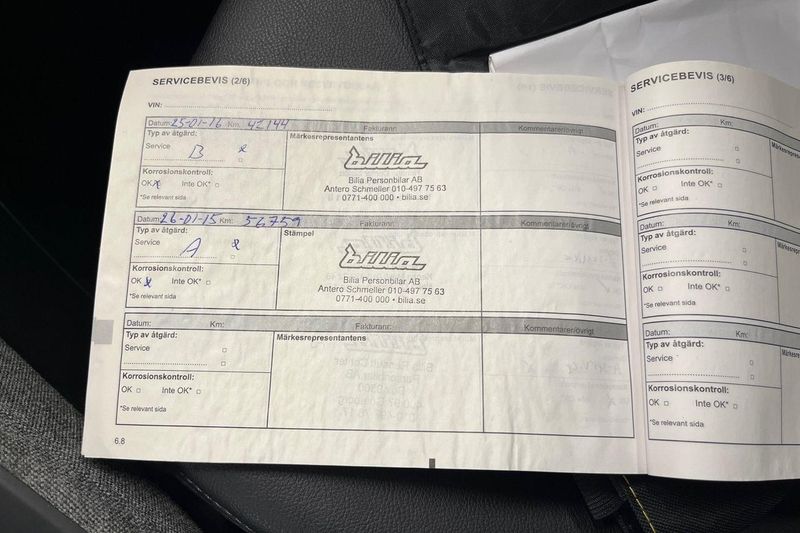 SERVICEBEVIS (2/6)
VIN:
Datum: 25-01-16 Km: 42144 Fakturanr: Kommentarer/övrigt
Typ av åtgärd: Märkesrepresentantens
Service B x
bilia
Bilia Personbilar AB
Antero Schmeller 010-497 75 63
0771-400 000 • bilia.se
Korrosionskontroll:
OK x Inte OK*
*Se relevant sida
Datum: 26-01-15 Km: 56759 Fakturanr: Kommentarer/övrigt
Typ av åtgärd: Stämpel
Service A x
bilia
Bilia Personbilar AB
Antero Schmeller 010-497 75 63
0771-400 000 • bilia.se
Korrosionskontroll:
OK x Inte OK*
*Se relevant sida
Datum: Km: Fakturanr: Kommentarer/övrigt
Typ av åtgärd: Märkesrepresentantens
Service
Korrosionskontroll:
OK Inte OK*
*Se relevant sida
6.8
SERVICEBEVIS (3/6)
VIN:
Datum: Km:
Typ av åtgärd:
Service
Korrosionskontroll:
OK Inte OK*
*Se relevant sida
Datum: Km:
Typ av åtgärd:
Service
Korrosionskontroll:
OK Inte OK*
*Se relevant sida
Datum: Km:
Typ av åtgärd:
Service
Korrosionskontroll:
OK Inte OK*
*Se relevant sida